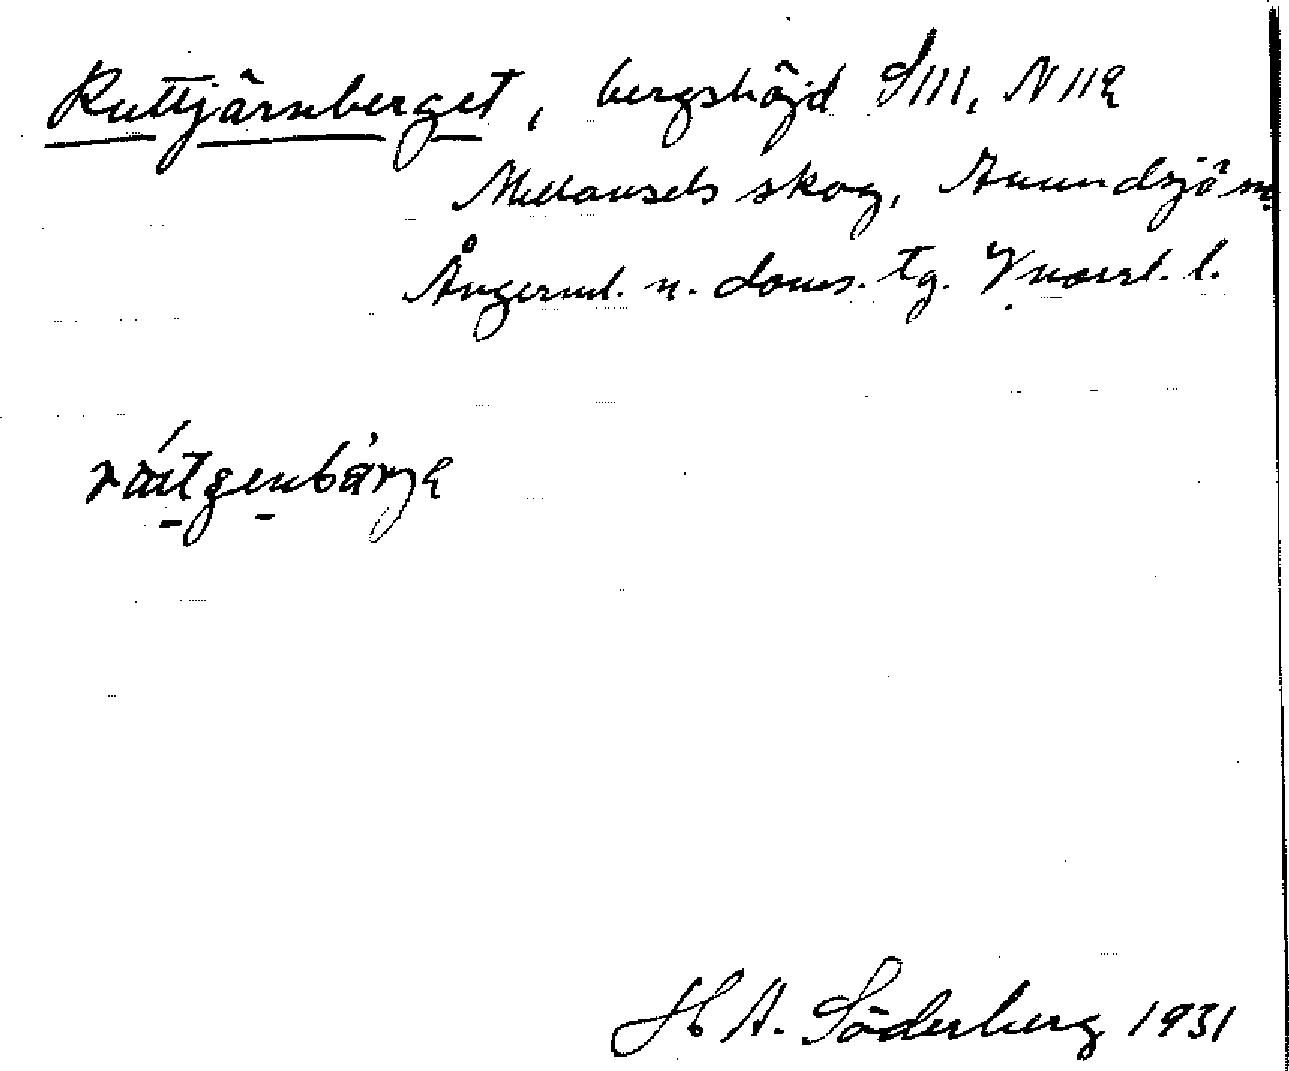 Ruttjärnberget, bergshöjd S111, N112
Mellansels skog, Anundsjö
Ångerml. n. doms. tg. V.norrl. l.
H A. Söderberg 1931